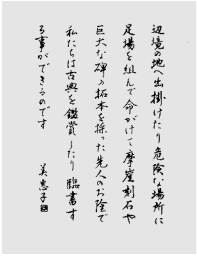 辺境の地へ出掛けたり危険な場所に
足場を組んで命がけで摩崖刻石や
巨大な碑の拓本を採った先人のお陰で
私たちは古典を鑑賞したり臨書す
る事ができるのです
美恵子